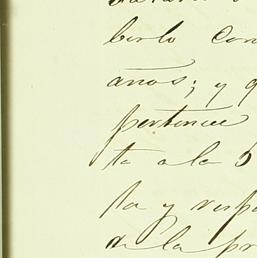 berlo con
años; y q
pertence
ta a la b
ta y resp
de la pr